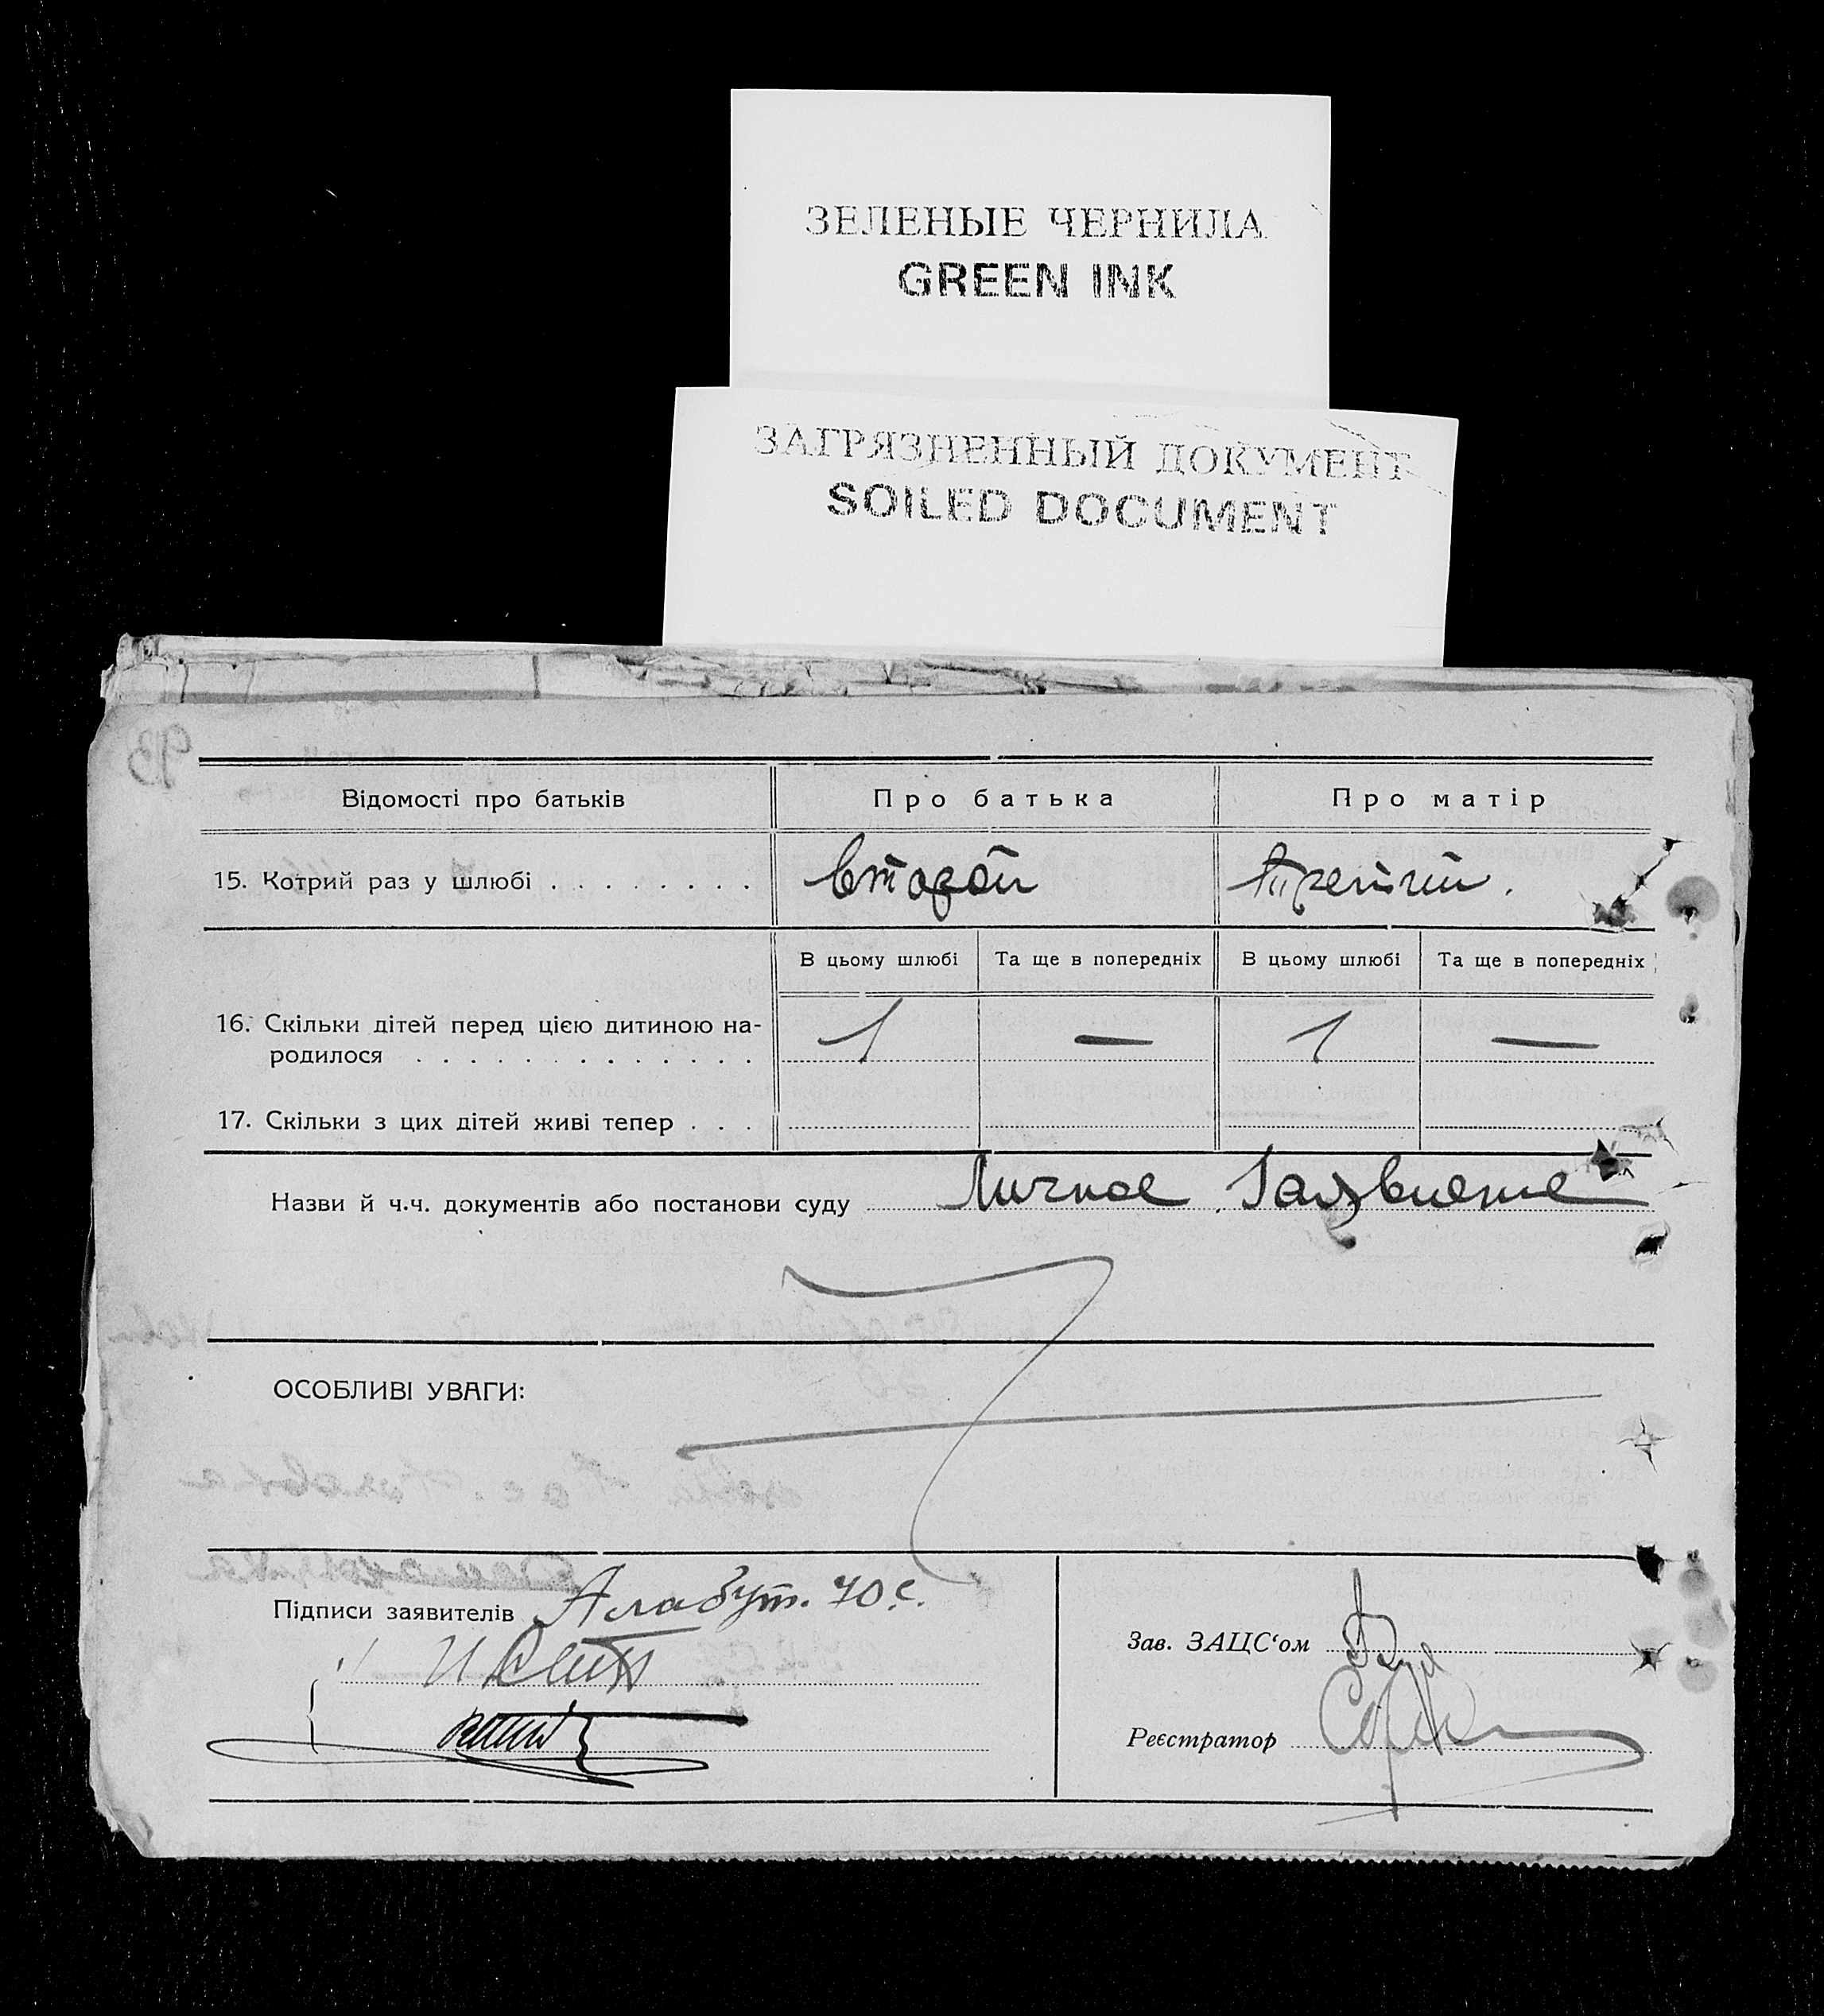 ЗЕЛЕНЫЕ ЧЕРНИЛА
GREEN INK
ЗАГРЯЗНЕННЫЙ ДОКУМЕНТ
SOILED DOCUMENT
93
Відомості про батьків Про батька Про матір
15. Котрий раз у шлюбі второй третий.
В цьому шлюбі Та ще в попередніх В цьому шлюбі Та ще в попередніх
16. Скільки дітей перед цією дитиною на-
родилося 1 — 1 —
17. Скільки з цих дітей живі тепер
Назви й ч.ч. документів або постанови суду Личное Заявление
ОСОБЛИВІ УВАГИ:
Підписи заявителів
Зав. ЗАЦС‘ом
Реєстратор